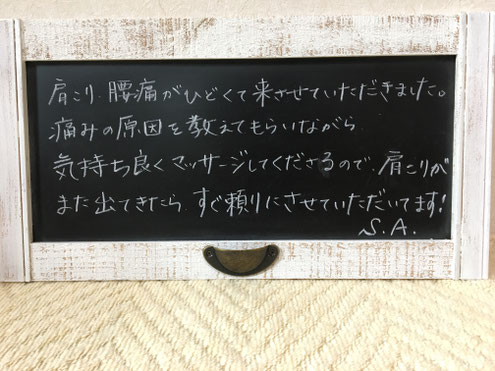 肩こり、腰痛がひどくて来させていただきました。
痛みの原因を教えてもらいながら
気持ち良くマッサージしてくださるので、肩こりが
また出てきたら、すぐ頼りにさせていただいてます!
S.A.